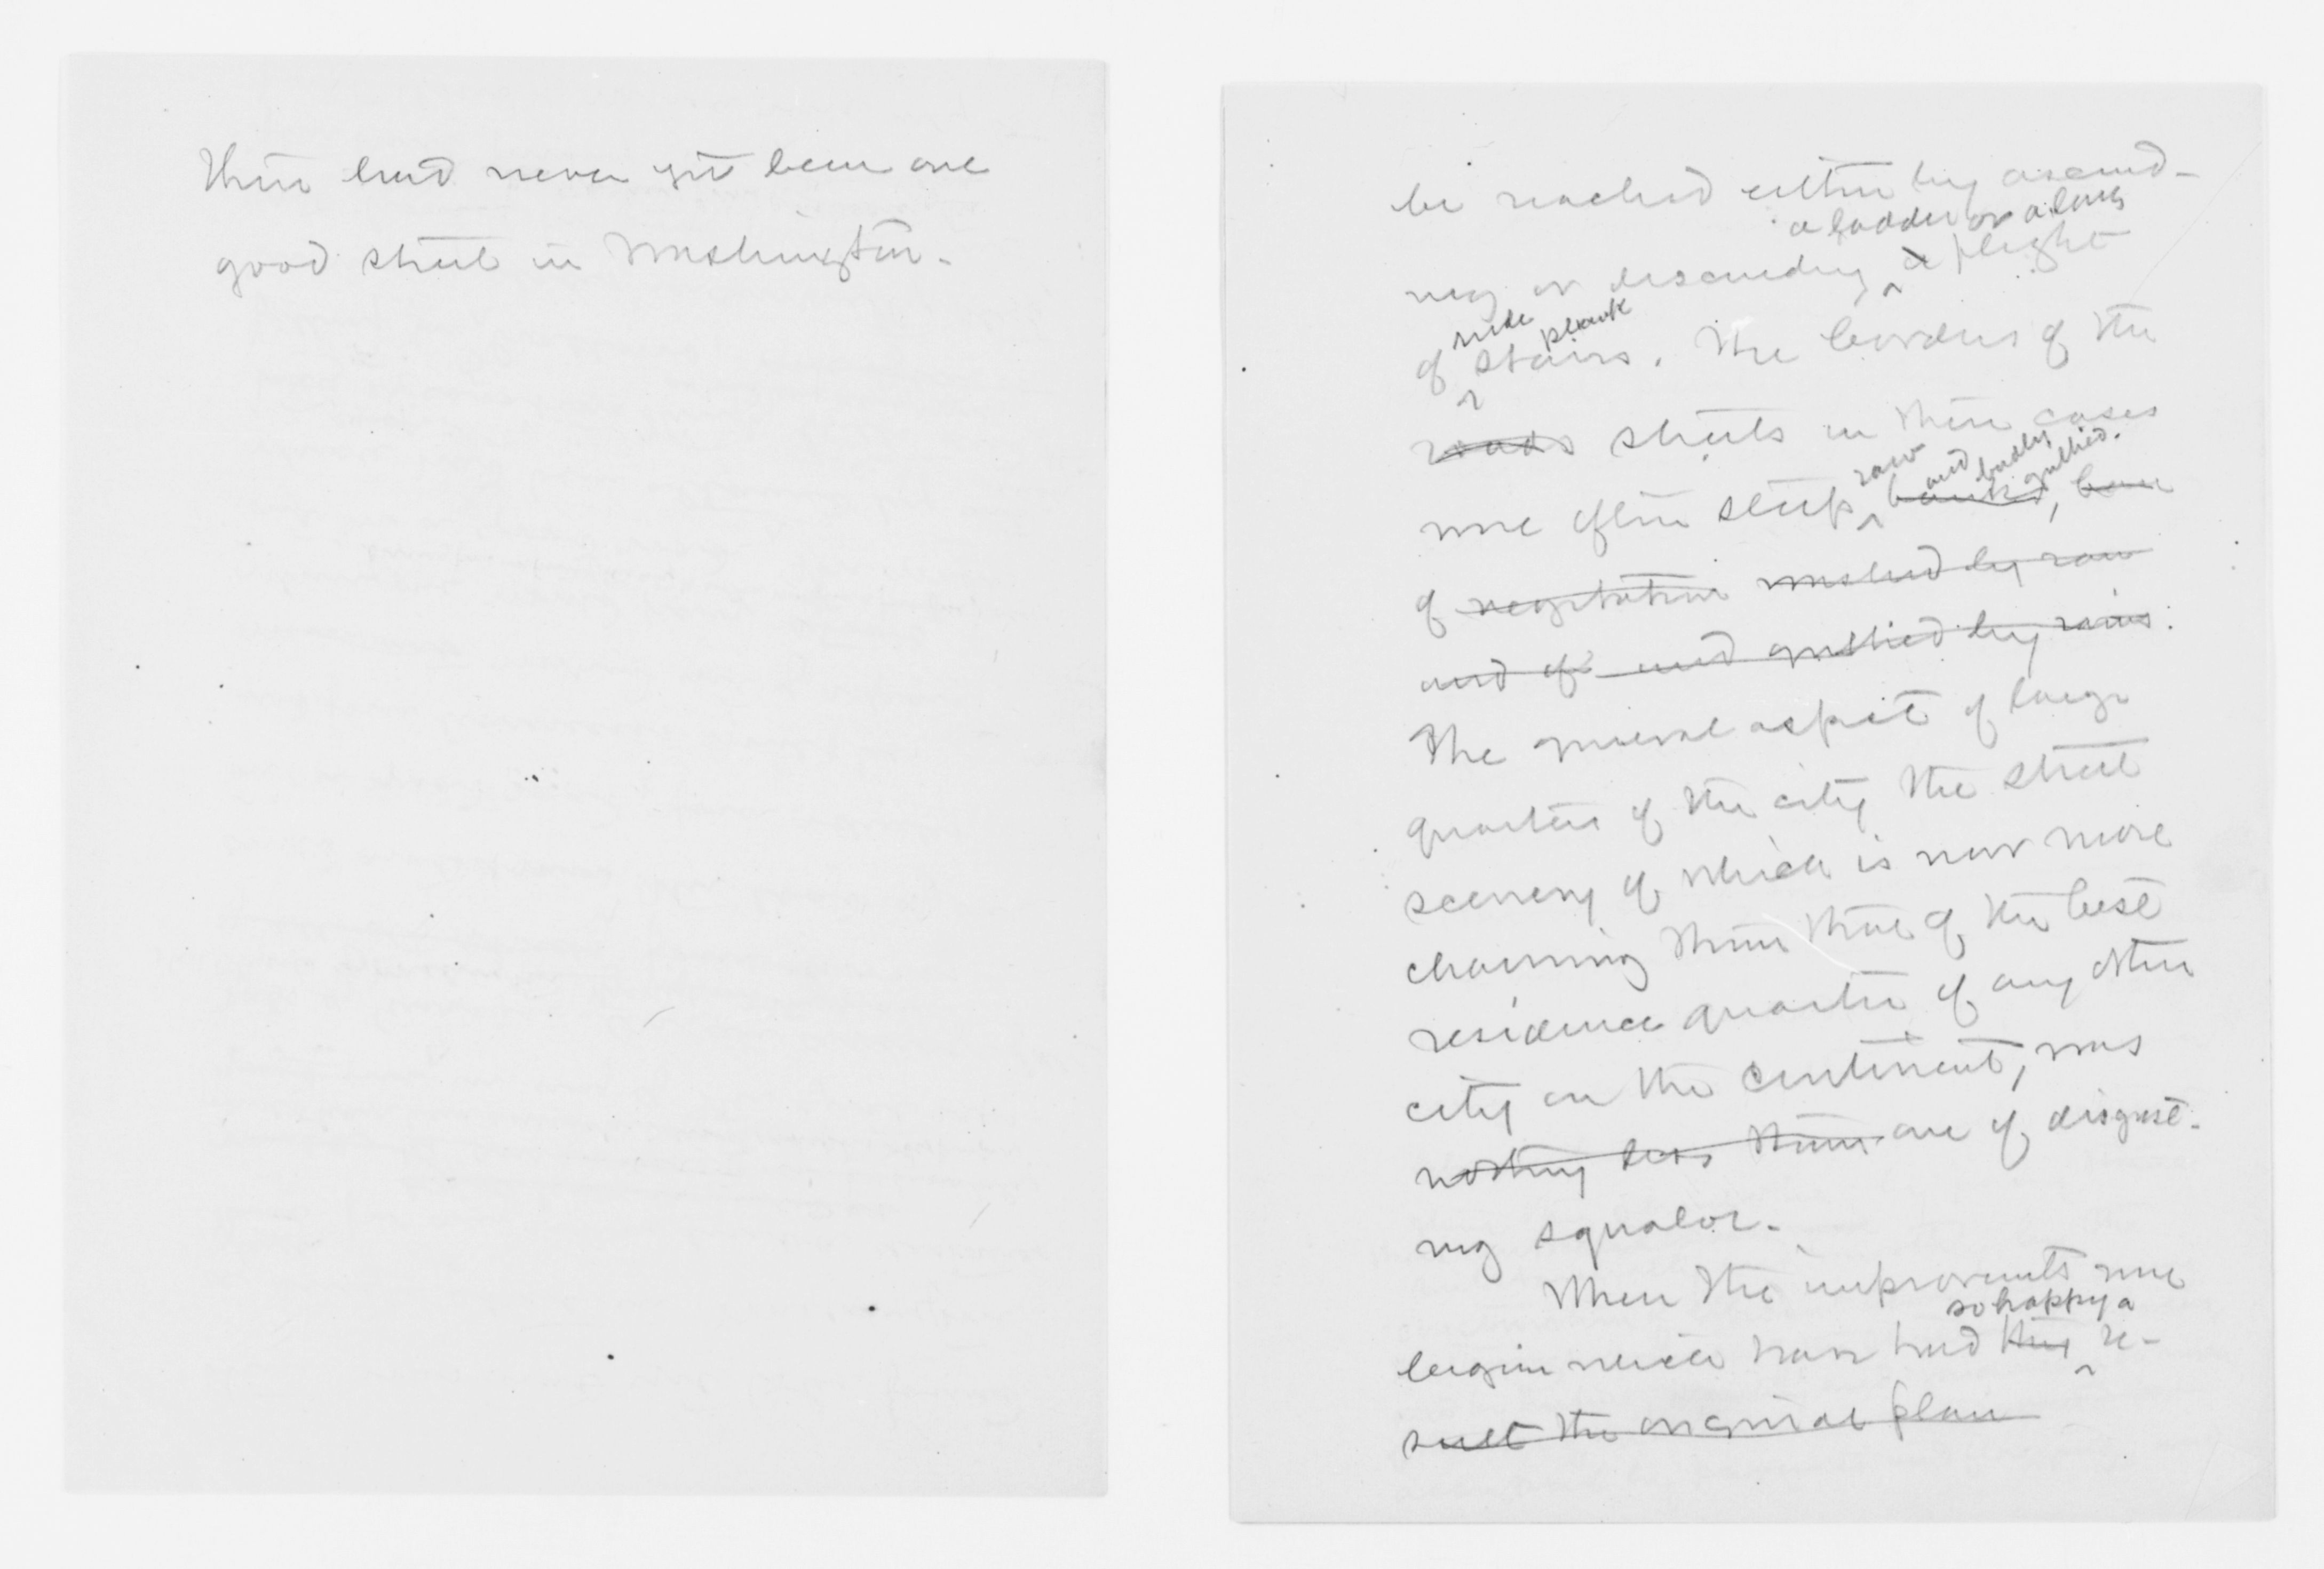 There had never yet been one
good street in Washington.
be reached either by ascend-
a ladder or a long
ing or descending a flight
rude plank
of stairs. The borders of the
roads streets in these cases
raw and badly gullied.
were often steep banks, bare
of vegetation washed by rain
and of and gullied by rains.
The general aspect of large
quarters of the city the street
scenery of which is now more
charming than that of the best
residence quarter of any other
city on the continent, was
nothing less than one of disgust-
ing squalor.
When the improvements were
so happy a
begun which have had this re-
sult the original plan